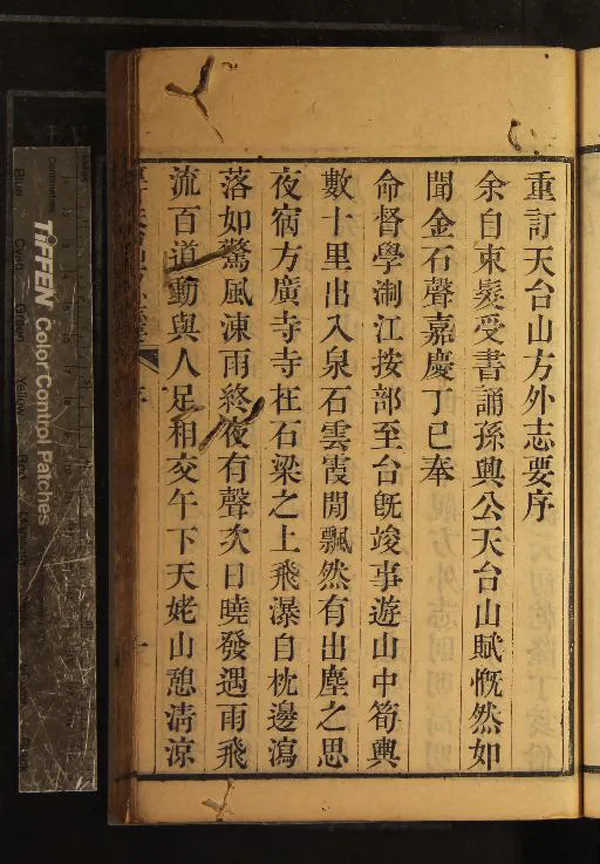 重訂天台山方外志要序
余自束髮受書誦孫興公天台山賦慨然如
聞金石聲嘉慶丁巳奉
命督學浙江按部至台旣竣事遊山中筍輿
數十里出入泉石雲霞閒飄然有出塵之思
夜宿方廣寺寺在石梁之上飛瀑自枕邊瀉
落如驚風凍雨終夜有聲次日曉發遇雨飛
流百道動與人足相交午下天姥山憩淸涼
序
一
TIFFEN Color Control Patches
Centimetres
Blue
Cyan
Green
Yellow